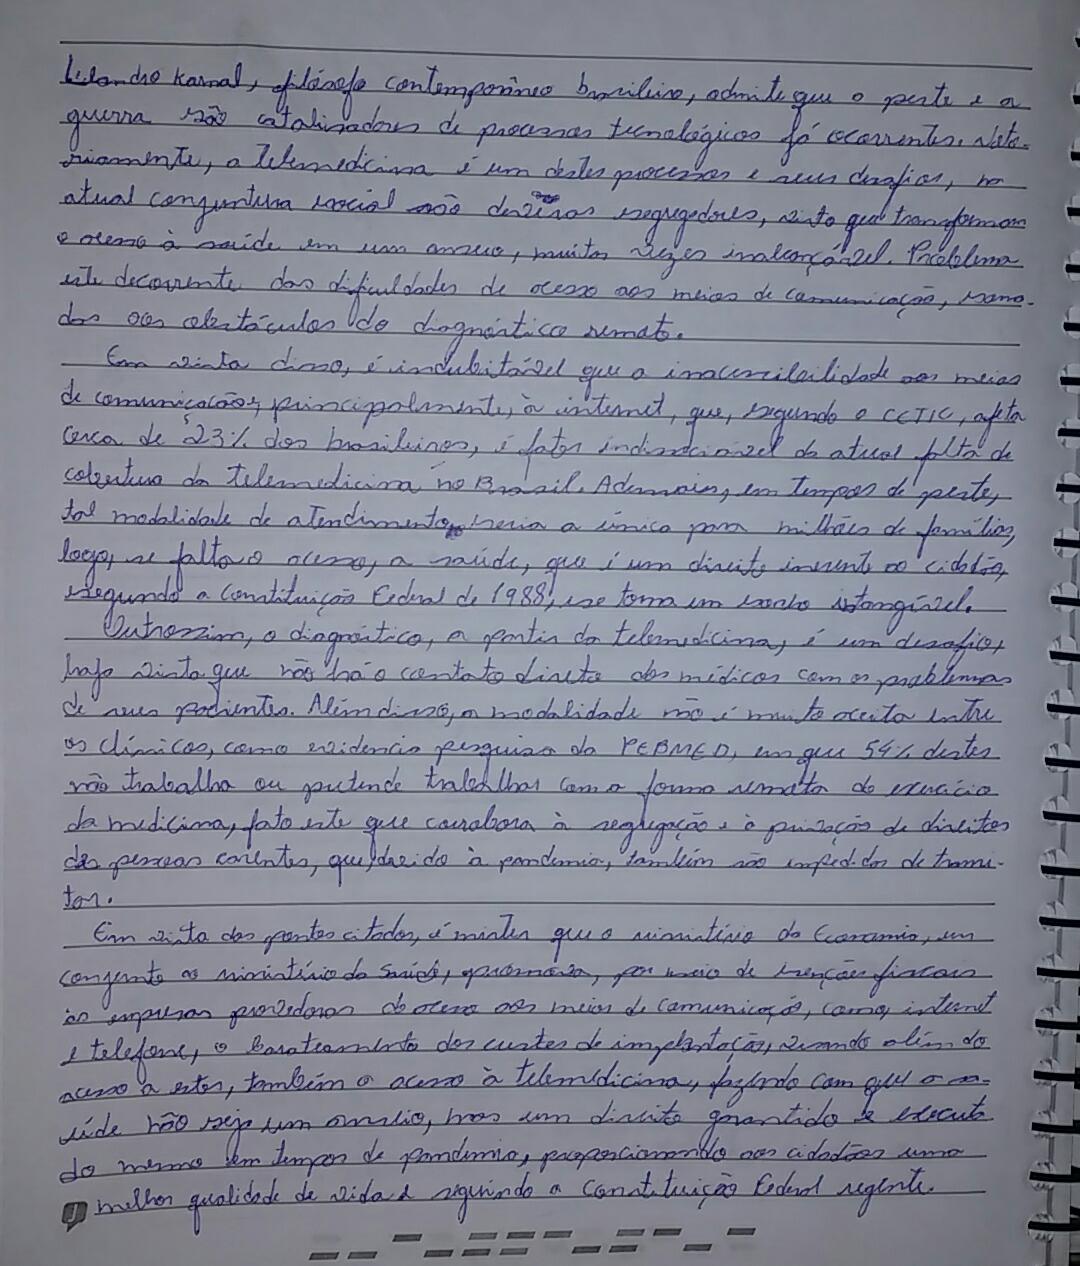 Leandro Karnal, filósofo contemporâneo brasileiro, admite que a peste e a
guerra são catalisadores de processos tecnológicos já ocorrentes. Noto-
riamente, a Telemedicina é um destes processos e seus desafios, na
atual conjuntura social são segregadores, visto que transformam
o acesso à saúde em um anseio, muitas vezes inalcançável. Problema
este decorrente das dificuldades de acesso aos meios de comunicação, soma-
dos aos obstáculos do diagnóstico remoto.
Em vista disso, é indubitável que a inacessibilidade aos meios
de comunicação, principalmente, à internet, que, segundo o CETIC, afeta
cerca de 23% dos brasileiros, é fator indissociável da atual falta de
cobertura da telemedicina no Brasil. Ademais, em tempos de peste,
tal modalidade de atendimento seria a única para milhões de famílias,
logo, se falta o acesso, a saúde, que é um direito inerente ao cidadão,
segundo a Constituição Federal de 1988, se torna um sonho intangível.
Outrossim, o diagnóstico, a partir da telemedicina, é um desafio,
haja vista que não há o contato direto dos médicos com os problemas
de seus pacientes. Além disso, a modalidade não é muito aceita entre
os clínicos, como evidencia pesquisa da PEBMED, em que 54% destes
não trabalha ou pretende trabalhar com a forma remota do exercício
da medicina, fato este que corrobora à segregação e à privação de direitos
das pessoas carentes, que, devido à pandemia, também são impedidos de transi-
tar.
Em vista dos pontos citados, é mister que o ministério da Economia, em
conjunto ao ministério da Saúde, promova, por meio de isenções fiscais
às empresas provedoras do acesso aos meios de comunicação, como, internet
e telefone, o barateamento dos custos de implantação, visando além do
acesso a estes, também o acesso à telemedicina, fazendo com que a sa-
úde não seja um anseio, mas um direito garantido e executa
do mesmo em tempos de pandemia, proporcionando aos cidadãos uma
melhor qualidade de vida e seguindo a Constituição Federal regente.